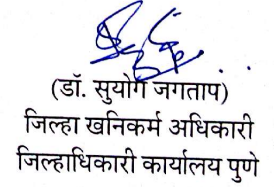 (डॉ. सुयोग जगताप)
जिल्हा खनिकर्म अधिकारी
जिल्हाधिकारी कार्यालय पुणे